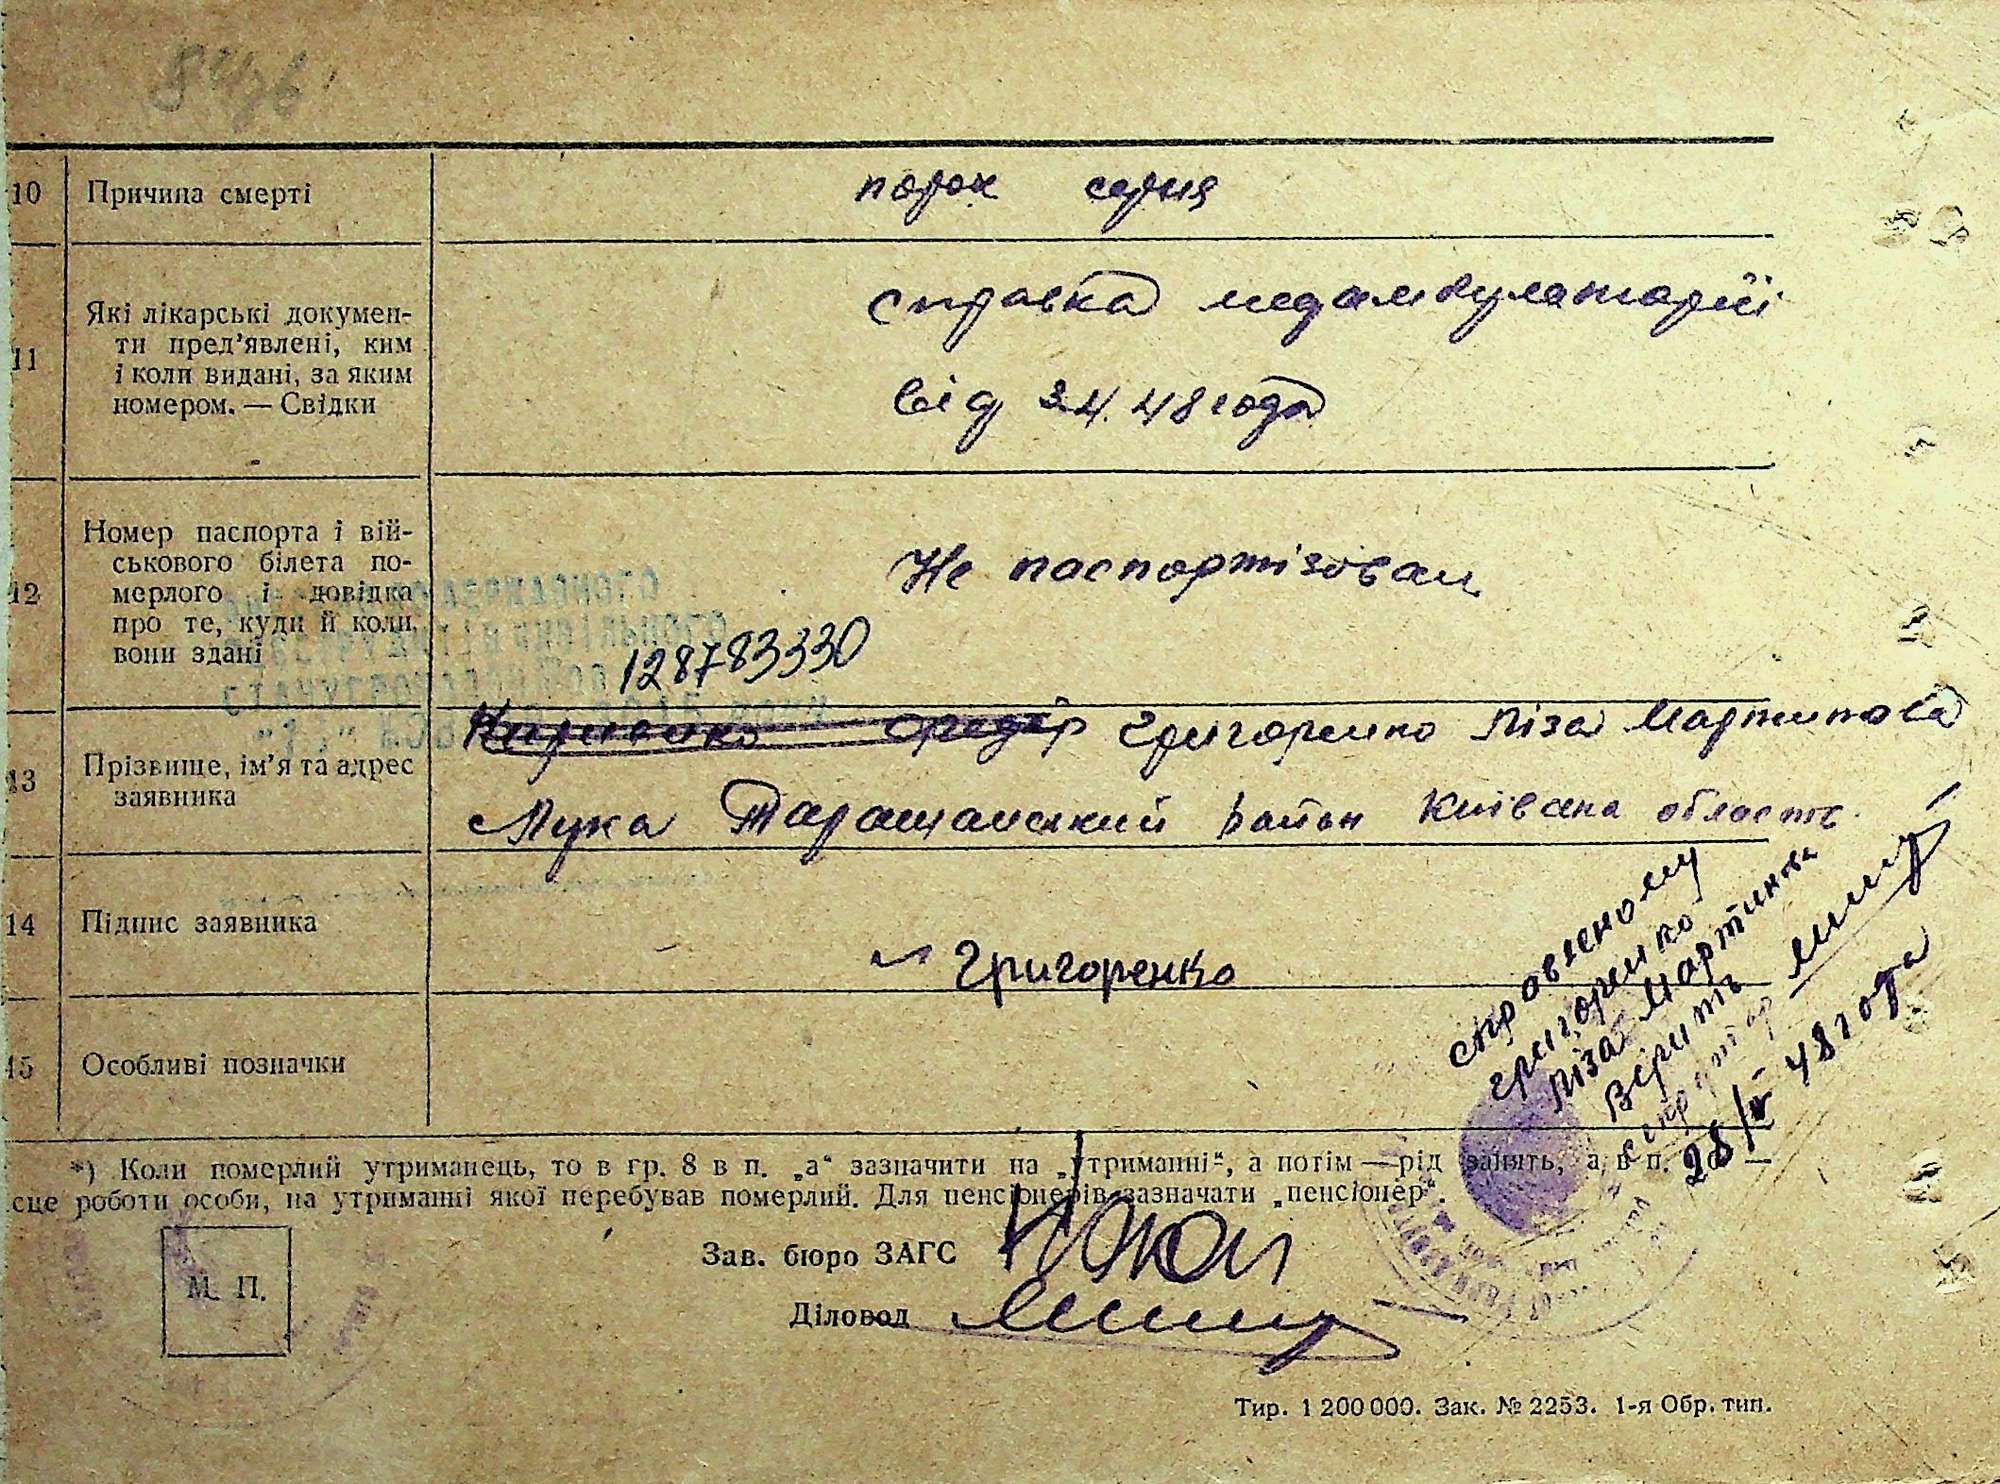 10 Причина смерті порок серця
11 Які лікарські докумен-
ти пред'явлені, ким
і коли видані, за яким
номером. — Свідки
справка медамбулаторії
від 3.4.48 года
12 Номер паспорта і вій-
ськового білета по-
мерлого і довідка
про те, куди й коли
вони здані
Не паспортізован
128783330
13 Прізвище, ім'я та адрес
заявника
Григоренко Ліза Мартинова
Лука Таращанський район Київська область
14 Підпис заявника
Григоренко
15 Особливі позначки
справленому
Григоренко
Ліза Мартинова
Вірить
секретар
28/IV 48 года
*) Коли померлий утриманець, то в гр. 8 в п. „а“ зазначити на „утриманні“, а потім — рід занять, а в п. —
сце роботи особи, на утриманні якої перебував померлий. Для пенсіонерів зазначати „пенсіонер“.
М. П.
Зав. бюро ЗАГС
Діловод
Тир. 1 200 000. Зак. № 2253. 1-я Обр. тип.